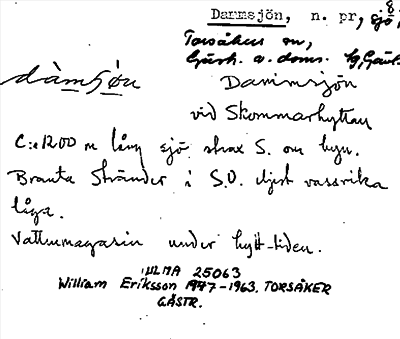 8
Darmsjön, n. pr, sjö,
Torsåkers sn,
Gästr. ö. doms. hg, Gävl.
dàmʃön Dammsjön
vid Skommarhyttan
C:a 1200 m lång sjö strax S. om hyn.
Branta stränder i S.O. eljest vassrika
låga.
Vattenmagasin under hytt-tiden.
ULMA 25063
William Eriksson 1947-1963. TORSÅKER
GÄSTR.